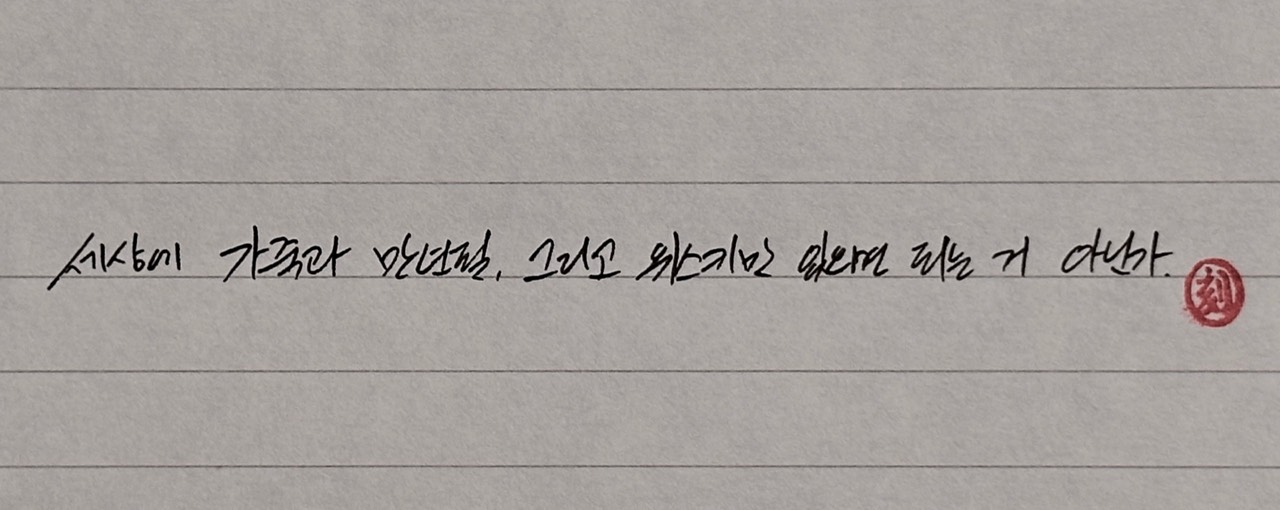 세상에 가족과 만년필, 그리고 위스키만 있으면 되는 거 아닌가.
刻